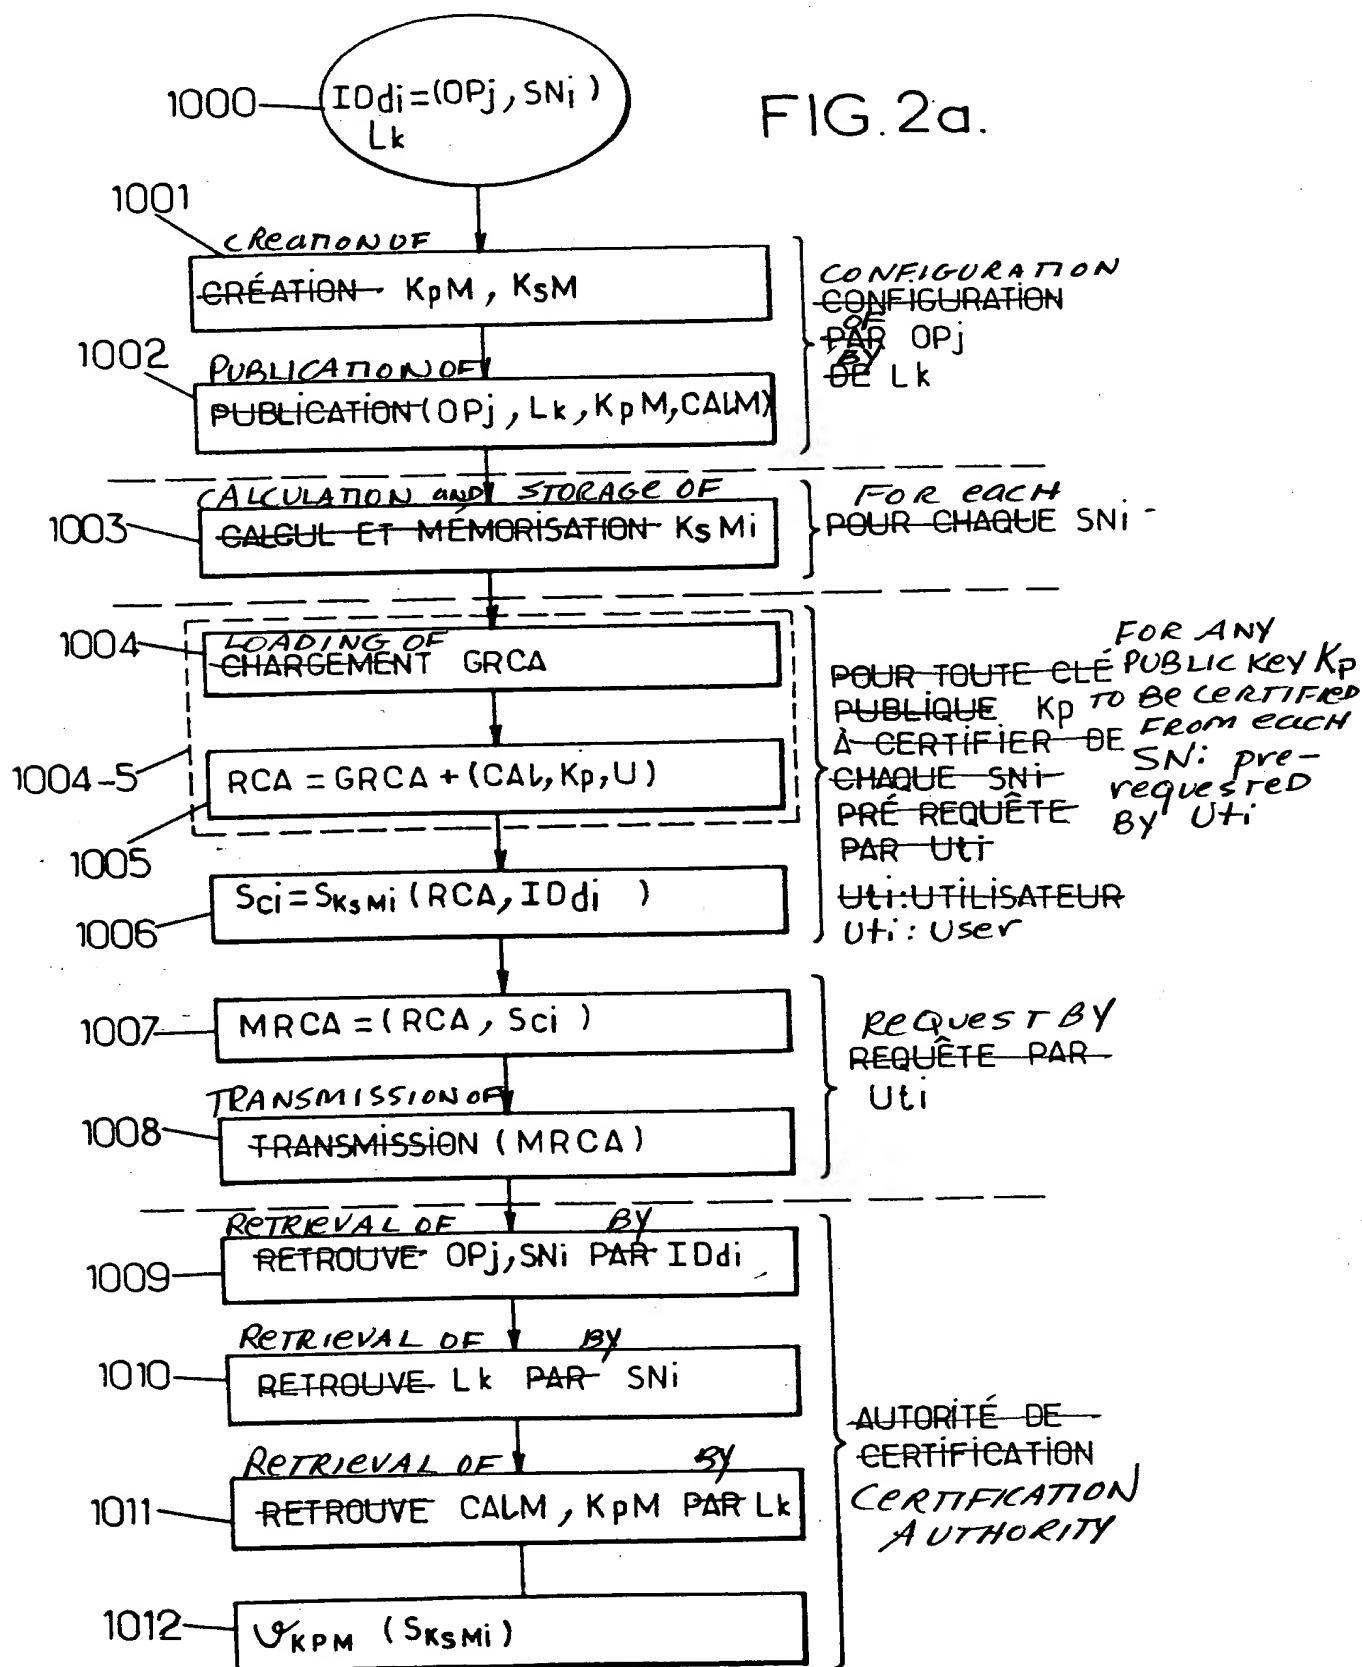 FIG.2a.
1000
IDdi=(OPj, SNi)
Lk
1001
CREATION OF
CRÉATION KpM, KsM
1002
PUBLICATION OF
PUBLICATION(OPj, Lk, KpM, CALM)
CONFIGURATION
CONFIGURATION
OF
PAR OPj
BY
DE Lk
1003
CALCULATION AND STORAGE OF
CALCUL ET MÉMORISATION KsMi
FOR each
POUR CHAQUE SNi
1004
LOADING OF
CHARGEMENT GRCA
1004-5
RCA = GRCA + (CAL, Kp, U)
1005
Sci=SKsMi (RCA, IDdi )
1006
POUR TOUTE CLÉ
PUBLIQUE Kp
À CERTIFIER DE
CHAQUE SNi
PRÉ REQUÊTE
PAR Uti
Uti:UTILISATEUR
Uti: User
FOR ANY
PUBLIC KEY Kp
TO BE CERTIFIED
FROM each
SNi pre-
requested
BY Uti
1007
MRCA =(RCA, Sci )
1008
TRANSMISSION OF
TRANSMISSION (MRCA)
REQUEST BY
REQUÊTE PAR
Uti
1009
RETRIEVAL OF BY
RETROUVE OPj,SNi PAR IDdi
1010
RETRIEVAL OF BY
RETROUVE Lk PAR SNi
1011
RETRIEVAL OF BY
RETROUVE CALM, KpM PAR Lk
1012
𝒱KPM (SKsMi)
AUTORITÉ DE
CERTIFICATION
CERTIFICATION
AUTHORITY